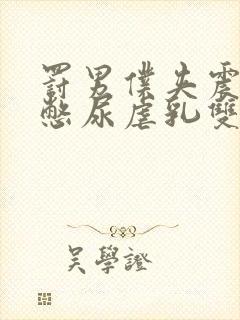 罰男僕失震
憋尿虐乳雙
吴學證